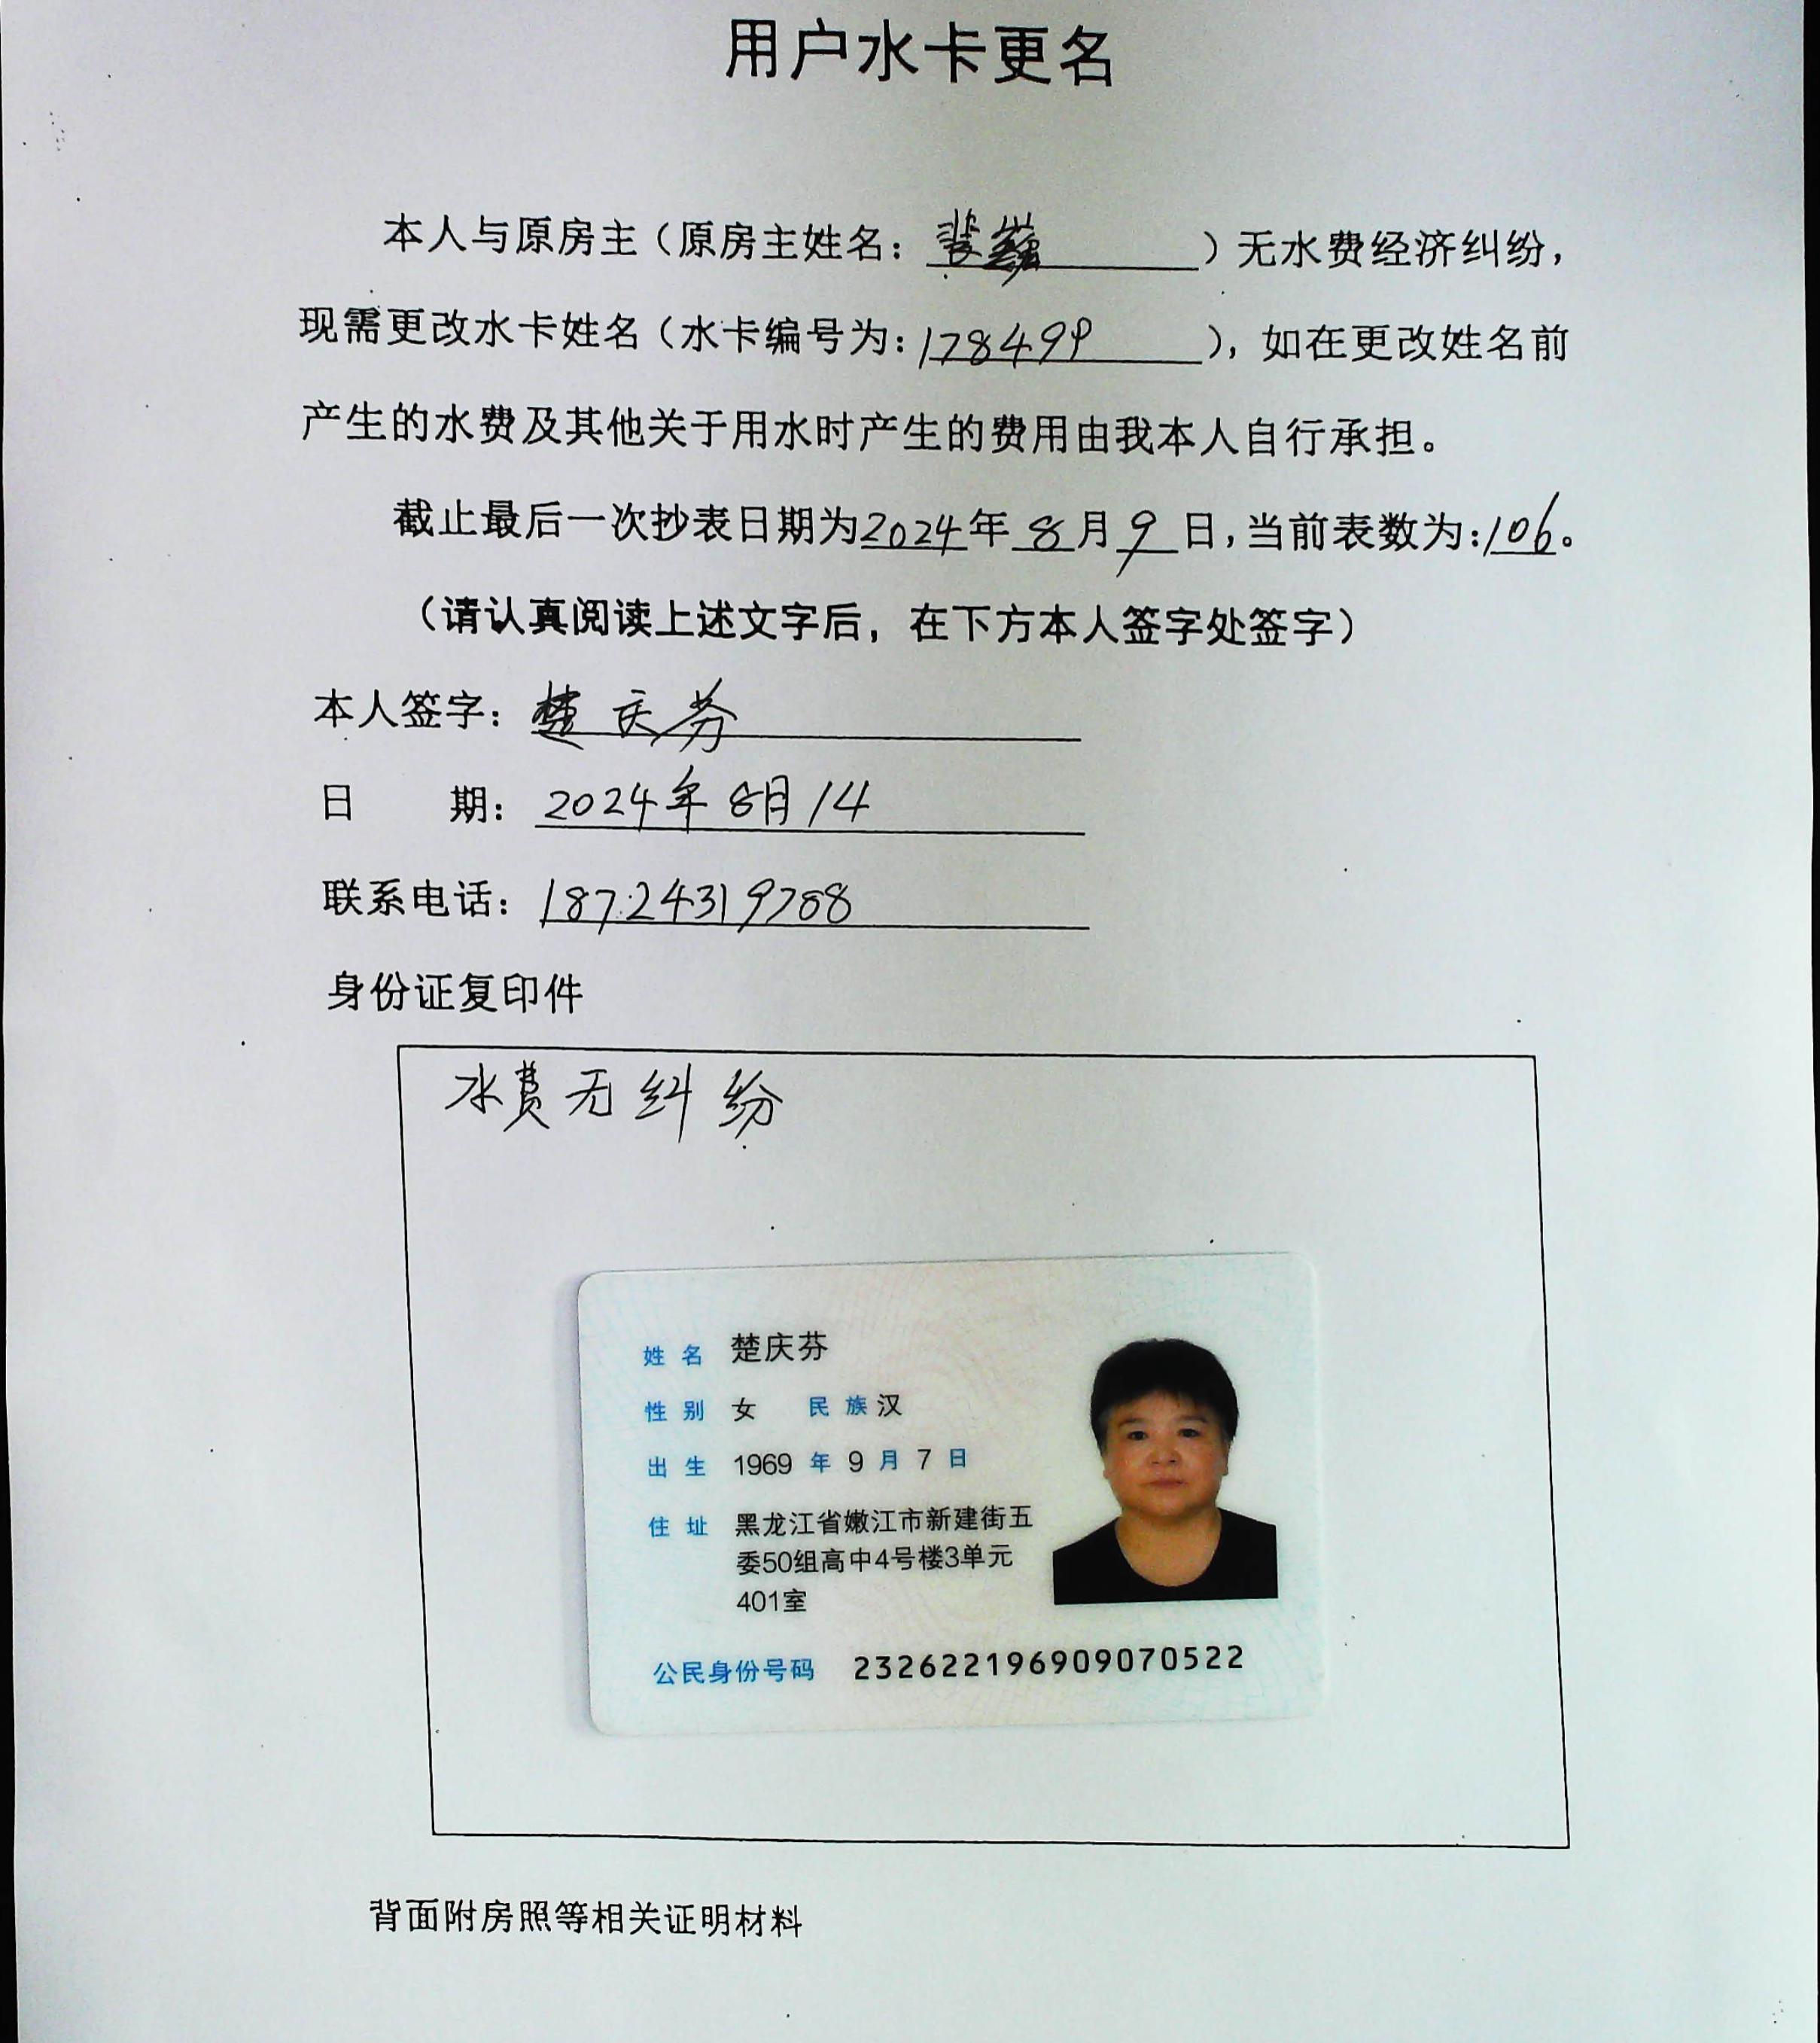 用户水卡更名
本人与原房主（原房主姓名：裴）无水费经济纠纷，
现需更改水卡姓名（水卡编号为：178499），如在更改姓名前
产生的水费及其他关于用水时产生的费用由我本人自行承担。
截止最后一次抄表日期为2024年8月9日，当前表数为：106。
（请认真阅读上述文字后，在下方本人签字处签字）
本人签字：楚庆芬
日 期：2024年8月14
联系电话：18724319788
身份证复印件
水费无纠纷
姓名 楚庆芬
性别 女 民族 汉
出生 1969年9月7日
住址 黑龙江省嫩江市新建街五
委50组高中4号楼3单元
401室
公民身份号码 232622196909070522
背面附房照等相关证明材料